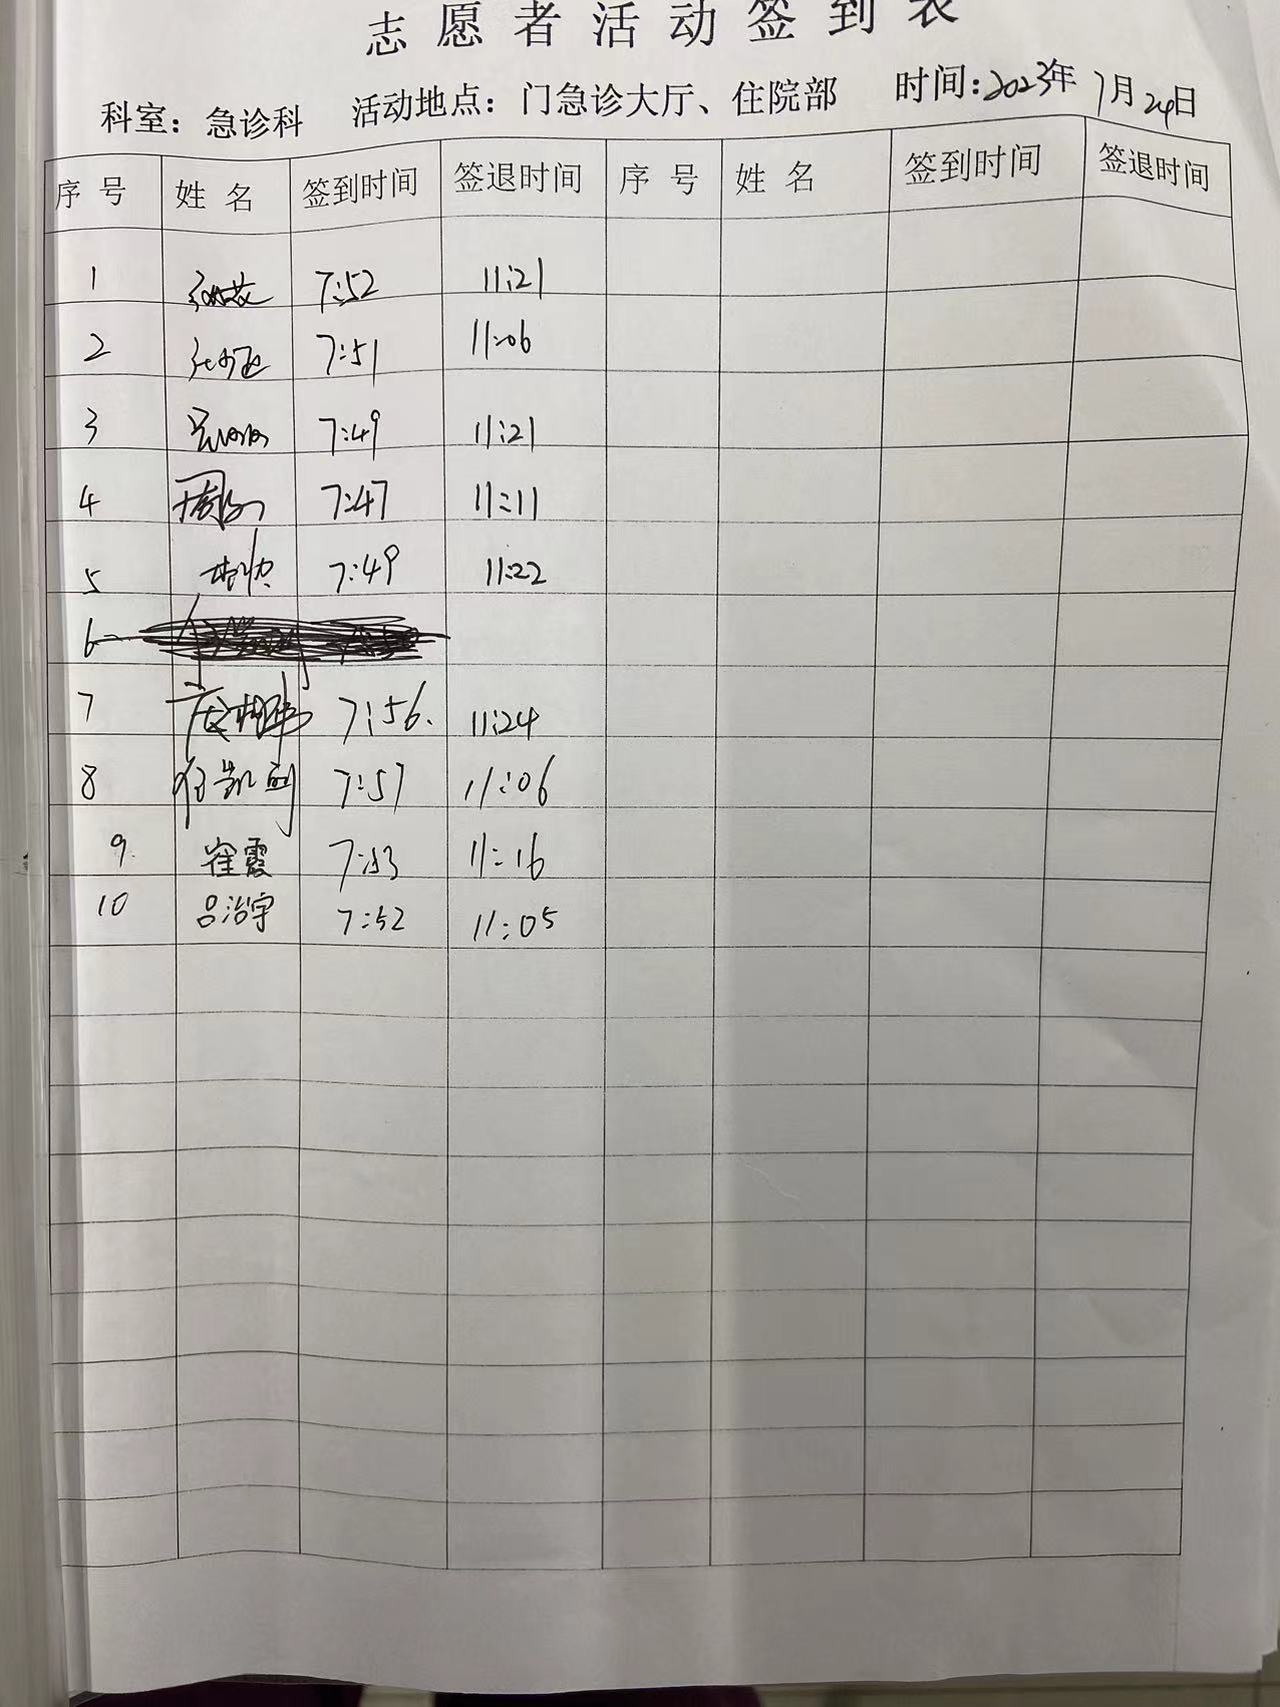 志愿者活动签到表
科室：急诊科 活动地点：门急诊大厅、住院部 时间：2023年7月24日
序号 姓名 签到时间 签退时间 序号 姓名 签到时间 签退时间
1 7:52 11:21
2 7:51 11:06
3 7:49 11:21
4 7:47 11:11
5 7:49 11:22
6
7 7:56. 11:24
8 任凯利 7:57 11:06
9. 崔霞 7:53 11:16
10 吕治宇 7:52 11:05